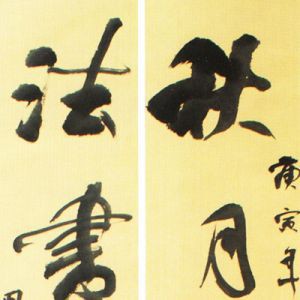 庚寅年
秋月
法書